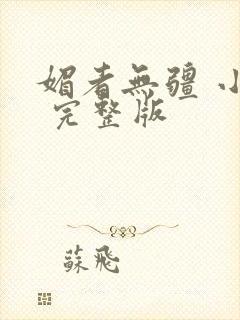 媚者無疆 小
完整版
蘇飛